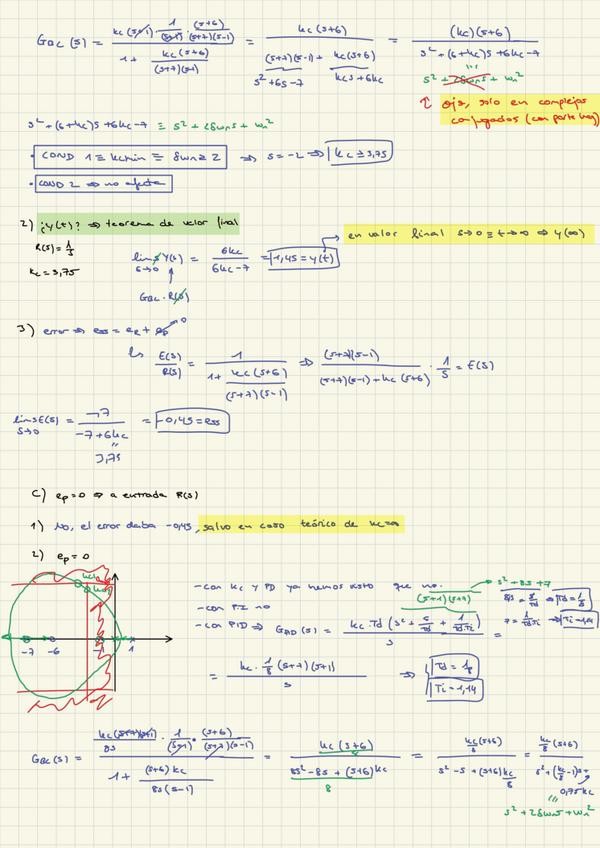 G_BC(s) = kc(s+1) · 1/(s+1) · (s+6)/((s+7)(s-1)) / (1 + kc(s+6)/((s+7)(s-1))) = kc(s+6) / ((s+7)(s-1) + kc(s+6)) = (kc)(s+6) / (s²+(6+kc)s+6kc-7)
s²+6s-7
kcs+6kc
s²+2δωns+ωn²
↑ ojo, solo en complejos
conjugados (con parte Im)
s²+(6+kc)s+6kc-7 ≡ s²+2δωns+ωn²
· COND 1 ≡ kcmin ≡ δωn≥2 ⇒ s=-2 ⇒ kc≥3,75
· COND 2 ⇒ no afecta
2) ¿y(t)? ⇒ teorema de valor final
→ en valor final s→0 ≡ t→∞ ⇒ y(∞)
R(s)=1/s
lim s→0 sY(s) = 6kc/(6kc-7) = 1,45=y(t)
kc=3,75
G_BC·R(s)
3) error ⇒ ess = eR + ep→0
↳ E(s)/R(s) = 1/(1 + kc(s+6)/((s+7)(s-1))) ⇒ (s+7)(s-1)/((s+7)(s-1)+kc(s+6)) · 1/s = E(s)
lim s→0 sE(s) = -7/(-7+6kc) = -0,45=ess
3,75
C) ep=0 ⇒ a entrada R(s)
1) No, el error daba -0,45, salvo en caso teórico de kc=∞
2) ep=0
-7 -6 -1 1
- con kc y PD ya hemos visto que no.
- con PI no
(s+1)(s+7) → s²+8s+7
8s = s/Td ⇒ Td=1/8
7 = 1/TdTi ⇒ Ti=1,14
- con PID ⇒ G_PID(s) = kc·Td(s²+s/Td+1/TdTi)/s =
= kc·1/8(s+7)(s+1)/s ⇒ Td=1/8
Ti=1,14
G_BC(s) = kc(s+7)(s+1)/8s · 1/(s+1) · (s+6)/((s+7)(s-1)) / (1 + (s+6)kc/(8s(s-1))) = kc(s+6)/(8s²-8s+(s+6)kc) = kc/8(s+6)/(s²-s+(s+6)kc/8) = kc/8(s+6)/(s²+(kc/8-1)s+
8
0,75kc
s²+2δωns+ωn²